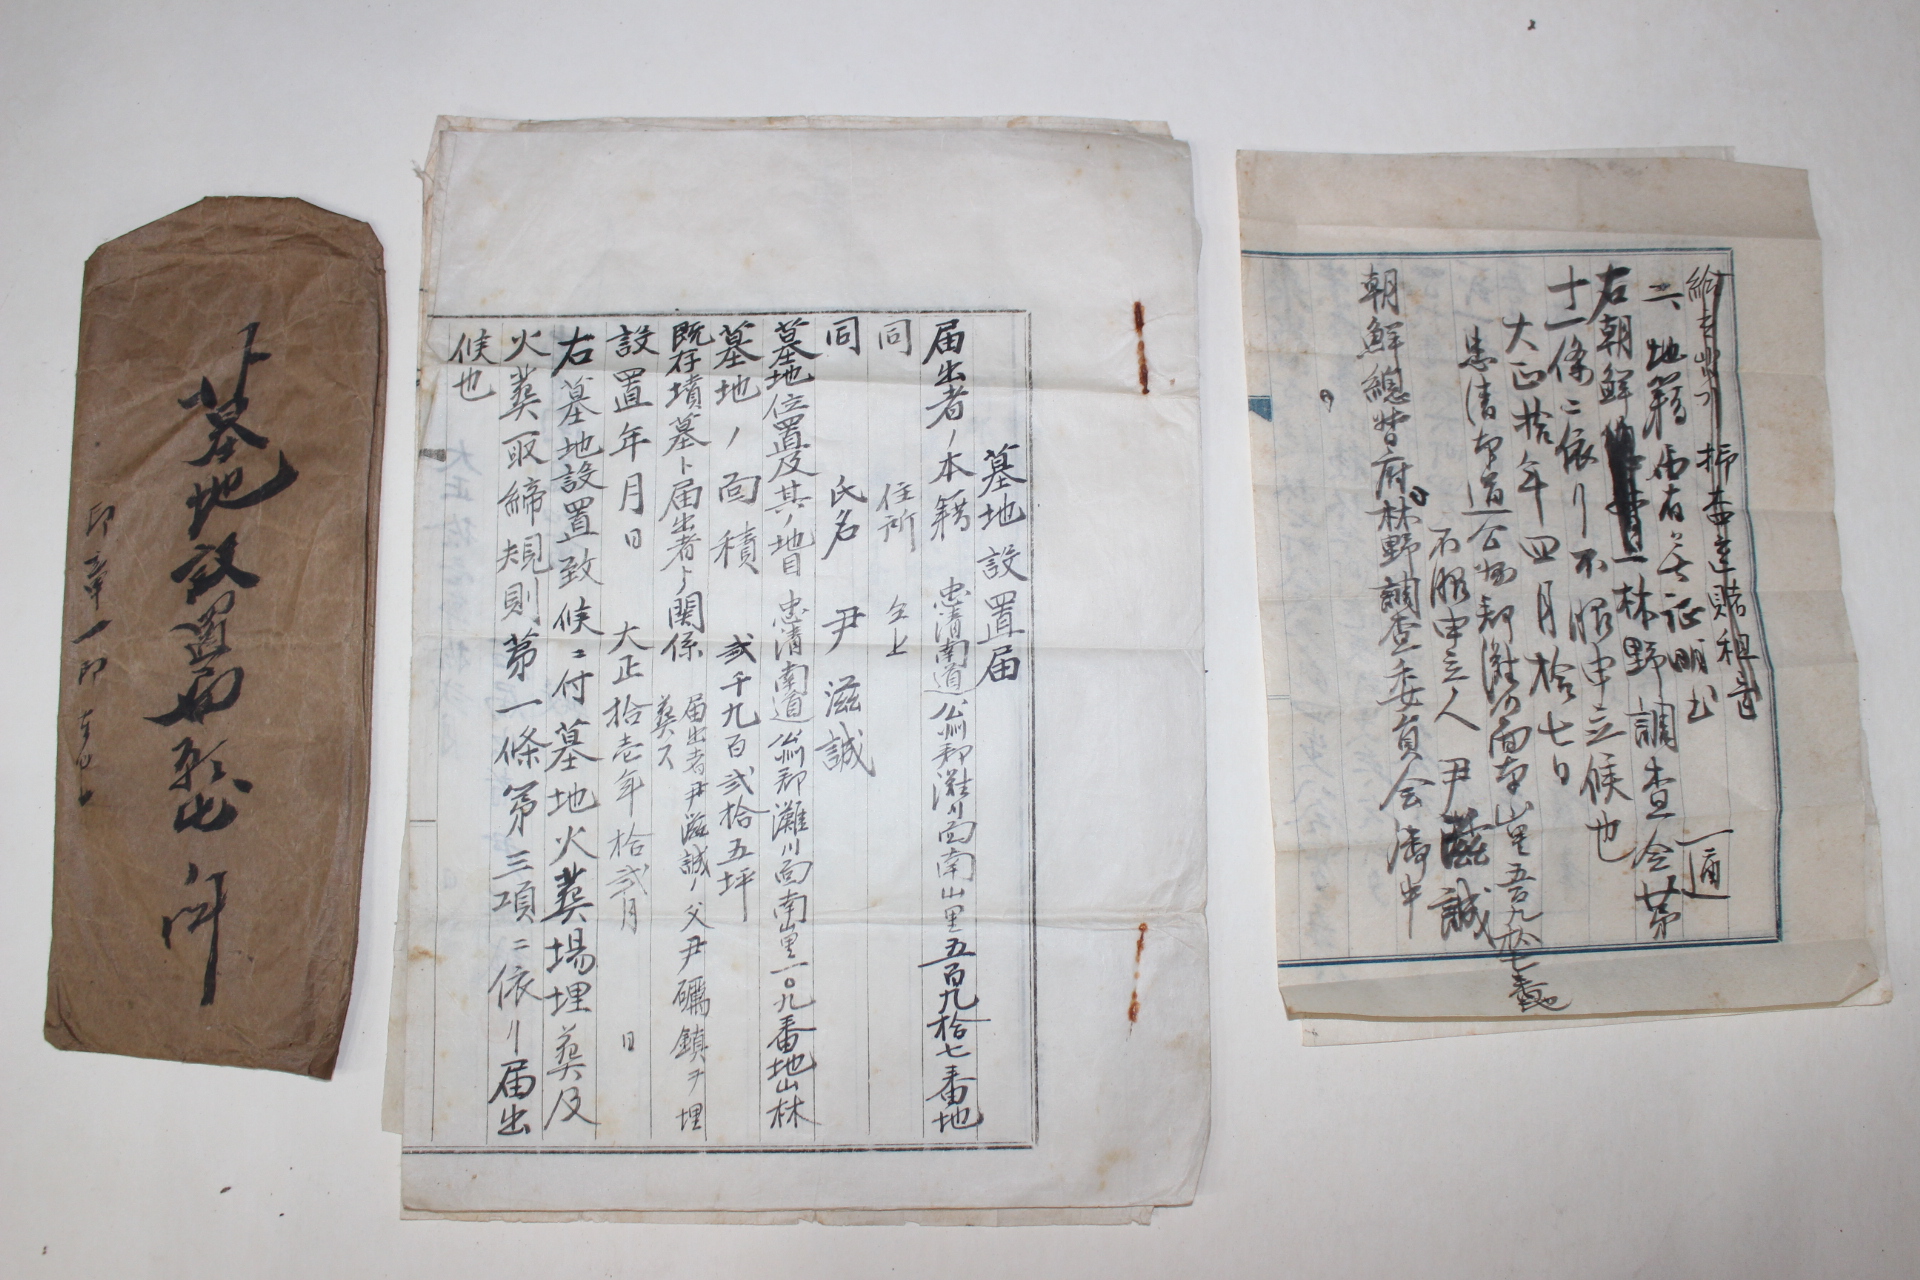 墓地設置届
印章一
墓地設置届
届出者ノ本籍 忠清南道公州郡灘川面南山里五百九拾七番地
同 住所 仝上
同 氏名 尹滋誠
墓地位置及其ノ地目 忠清南道公州郡灘川面南山里一〇九番地山林
墓地ノ面積 貳千九百貳拾五坪
既存墳墓ト届出者トノ関係 届出者尹滋誠ノ父尹礪鎮ヲ埋葬ス
設置年月日 大正拾壱年拾貳月 日
右墓地設置致候ニ付墓地火葬場埋葬及
火葬取締規則第一條第三項ニ依リ届出
候也
一通
一、地籍 証明
右朝鮮 林野調査令第
十一條ニ依リ不服申立候也
大正拾年四月拾七日
忠清南道公州郡灘川面南山里五百九拾七番地
不服申立人 尹滋誠
朝鮮總督府林野調査委員会御中